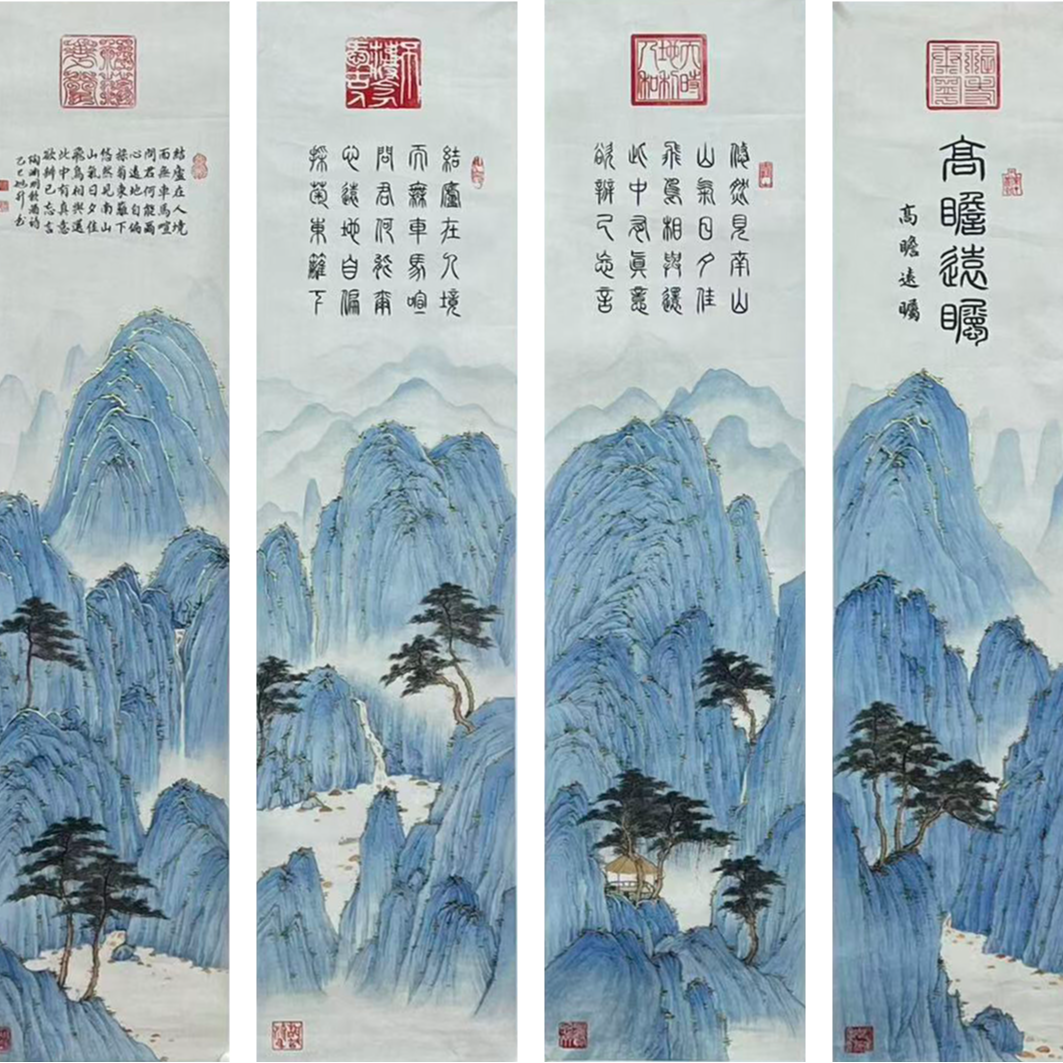 結廬在人境
而無車馬喧
問君何能爾
心遠地自偏
採菊東籬下
悠然見南山
山氣日夕佳
飛鳥相與還
此中有真意
欲辨已忘言
陶淵明飲酒詩
結廬在人境
而無車馬喧
問君何能爾
心遠地自偏
採菊東籬下
天時
地利
人和
悠然見南山
山氣日夕佳
飛鳥相與還
此中有真意
欲辨已忘言
高瞻遠矚
高瞻遠矚